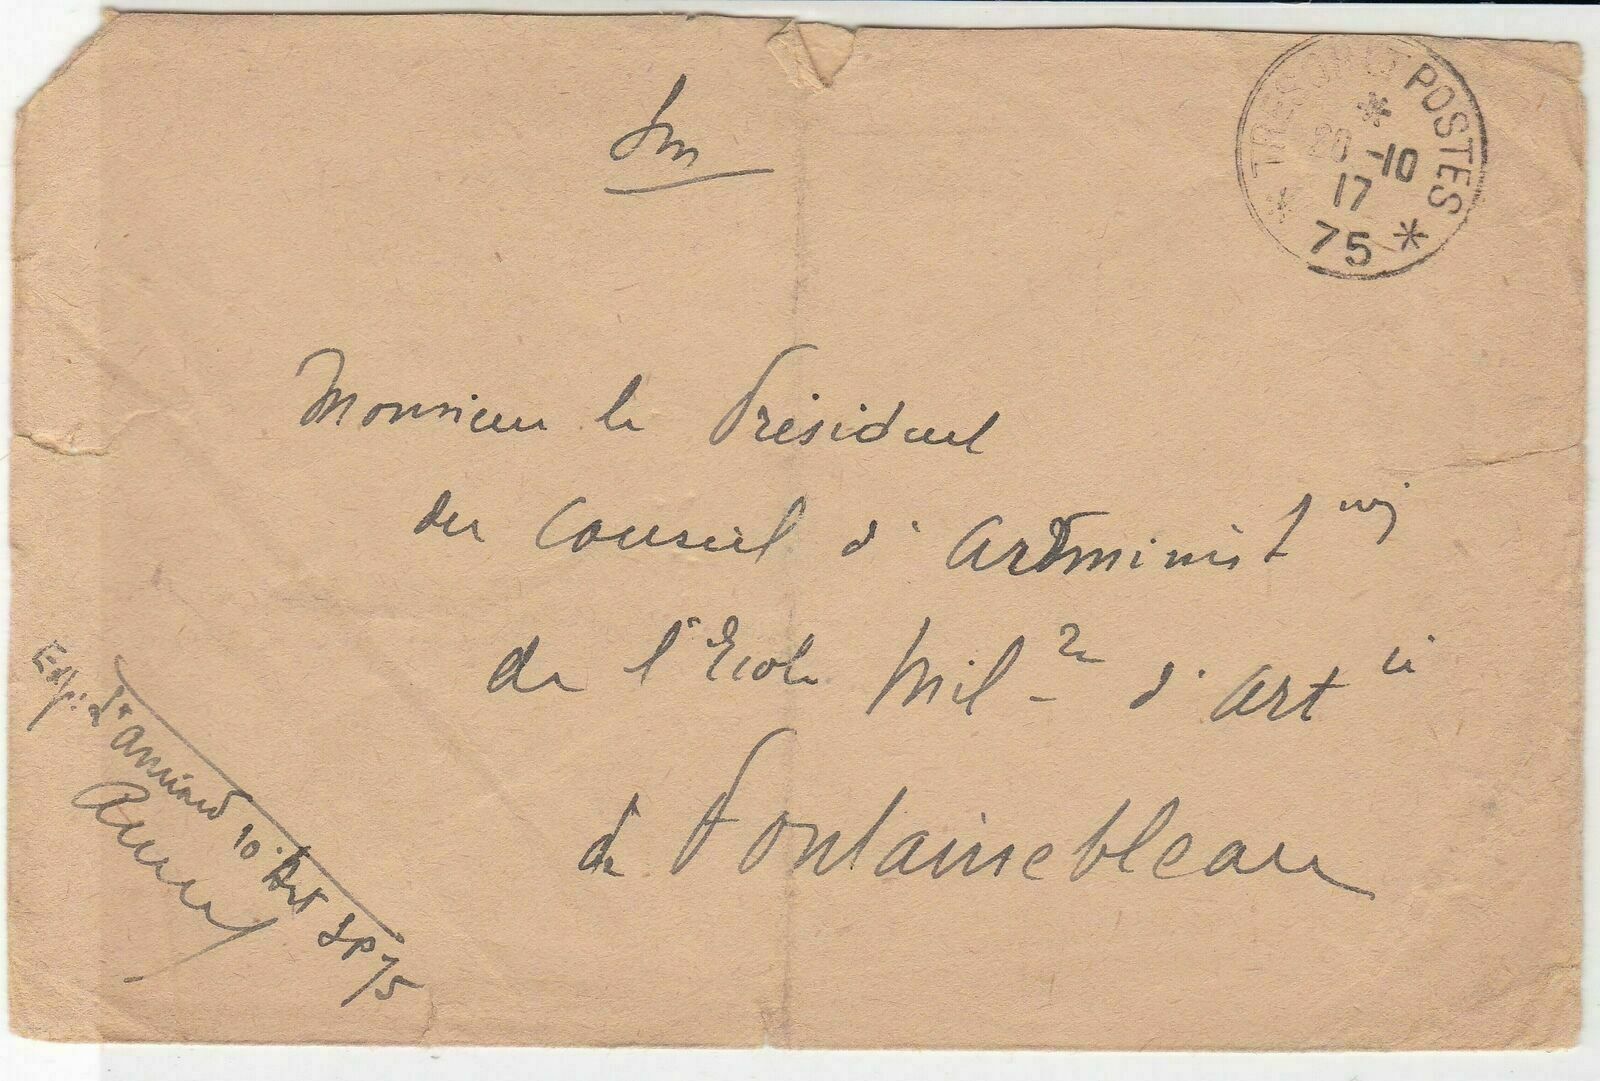 TRESOR ET POSTES
20 -10
17
75
Monsieur le Président
du Conseil d'Administ
de l'Ecole Mil re d'Art ie
de Fontainebleau
Exp:
10e Art SP 75